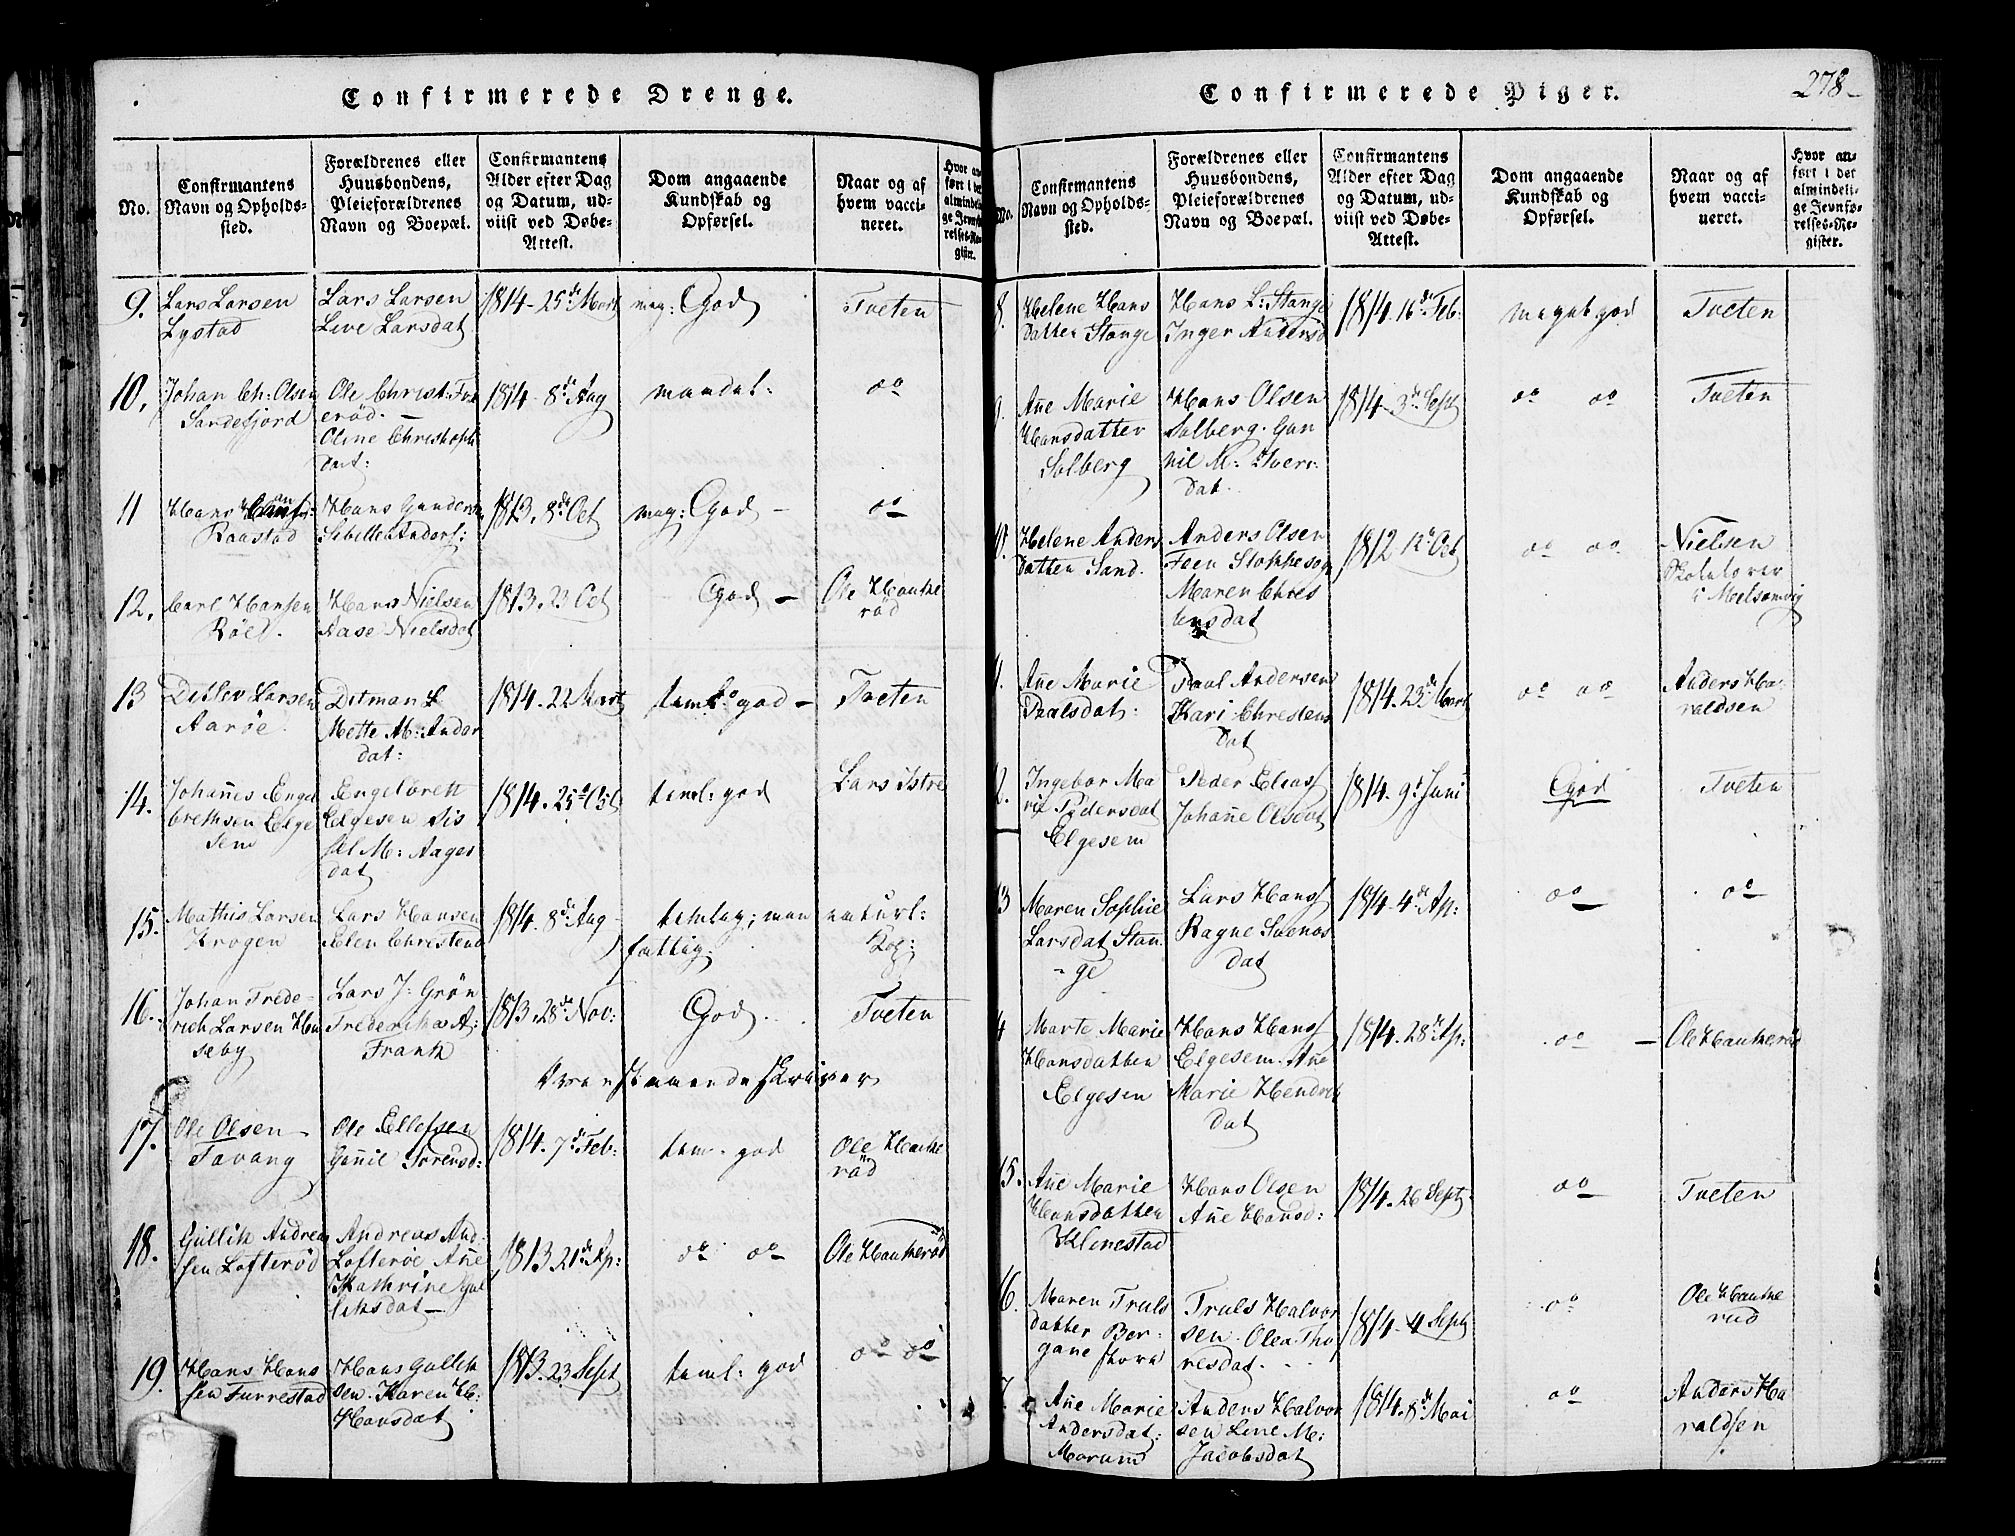 Confirmerede Drenge.
No.
Confirmantens
Navn og Opholds-
sted.
Forældrenes eller
Huusbondens,
Pleieforældrenes
Navn og Boepæl.
Confirmantens
Alder efter Dag
og Datum, ud-
viist ved Døbe-
Attest.
Dom angaaende
Kundskab og
Opførsel.
Naar og af
hvem vacci-
neret.
Hvor an-
ført i det
almindeli-
ge Jevnfø-
relses-Re-
gister.
9. Lars Larsen
Lystad
Lars Larsen
Live Larsdat
1814 - 25de Mart
mag: God
Tveten
10. Johan Ch: Olsen
Sandefjord
Ole Christ:
erød. -
Oline Christoph
dat:
1814 - 8de Aug
maadel:
do
11 Hans
Raastad
Hans Gunders
Sibelle Anders:
1813. 8de Oct
mag: God -
do
12. Carl Hansen
Røel.
Hans Nielsen
Aase Nielsdat
1813. 23 Oct
God -
Ole Hauke
rød
13 Detlev Larsen
Aarøe.
Ditman L
Mette M: Ander
dat:
1814. 22 Mart
teml. god -
Tveten
14. Johañes Engel
brethsen Elge
sem
Engelbrett
Elgesem Sis
sel M: Aages
dat
1814. 25
teml: god
Lars Istre
15. Mathis Larsen
Krogen
Lars Hansen
Elen Christend
1814. 8de Aug -
temlag; men
fattig.
naturl:
Kop:
16. Johan Frede-
rich Larsen Hu
seby
Lars J: Grøn
Frederikas A:
Frank
1813. 28de Nov:
God.
Tveten
17. Ole Olsen -
Tavang
Ole Ellefsen
Gunil Sørensd:
1814. 7de Feb:
tem. god
Ole Hauke
rød
18. Gullik Andrea
sen Lofterød
Andreas And-
Lofterøe Añe
Kathrine Gul
liksdat -
1813 21de Ap:
do do
Ole Haukerød
19. Hans Han
sen Furrestad
Hans Gullik
sen. Karen H:
Hansdat
1813. 23 Sept
teml: god
do do
Confirmerede Piger.
278-
No.
Confirmantens
Navn og Opholds-
sted.
Forældrenes eller
Huusbondens,
Pleieforældrenes
Navn og Boepæl.
Confirmantens
Alder efter Dag
og Datum, ud-
viist ved Døbe-
Attest.
Dom angaaende
Kundskab og
Opførsel.
Naar og af
hvem vacci-
neret.
Hvor an-
ført i det
almindeli-
ge Jevnfø-
relses-Re-
gister.
8. Helene Hans
datter Stange
Hans L: Stange
Inger Andersd
1814. 16de Feb:
meget god
Tveten
9. Añe Marie
Hansdatter
Solberg
Hans Olsen
Solberg. Gun
nil M: Iver:
dat.
1814 - 3de Sept
do do
Tveten
Helene Anders
datter Sand.
Anders Olsen
Feen Stokke sogn
Maren Chris
tensdat
1812 12 Oct
do do
Nielsen
Skolelærer
i Melsomvig
Añe Marie
Paalsdat:
Paul Andersen
Kari Christens
dat
1814. 23de Mart
do do
Anders Ha-
raldsen
2. Ingebor Ma
rie Pedersdat
Elgesem
Peder Elias
Johañe Olsdat
1814. 9d Juni
God
Tveten
13 Maren Sophie
Larsdat Stan
-ge
Lars Hans
Ragne Svends
dat
1814. 4de Ap:
do
do
4 Marte Marie
Hansdatter
Elgesem
Hans Hans
Elgesem. Añe
Marie Hendrik
dat
1814. 28de Ap:
do -
Ole Haukerød
15. Añe Marie
Hansdatter
Klinestad
Hans Olsen
Añe Hansd:
1814. 26 Sept
do
Tveten
6. Maren Truls
datter Ber-
gane
Truls Halvor
sen. Olea Tho
resdat.
1814 - 4 Sept
do
Ole Hauke
rød
7. Añe Marie
Andersdat:
Marum
Anders Halvor
sen Line M:
Jacobsdat
1814. 8de Mai
do
Anders Ha
raldsen